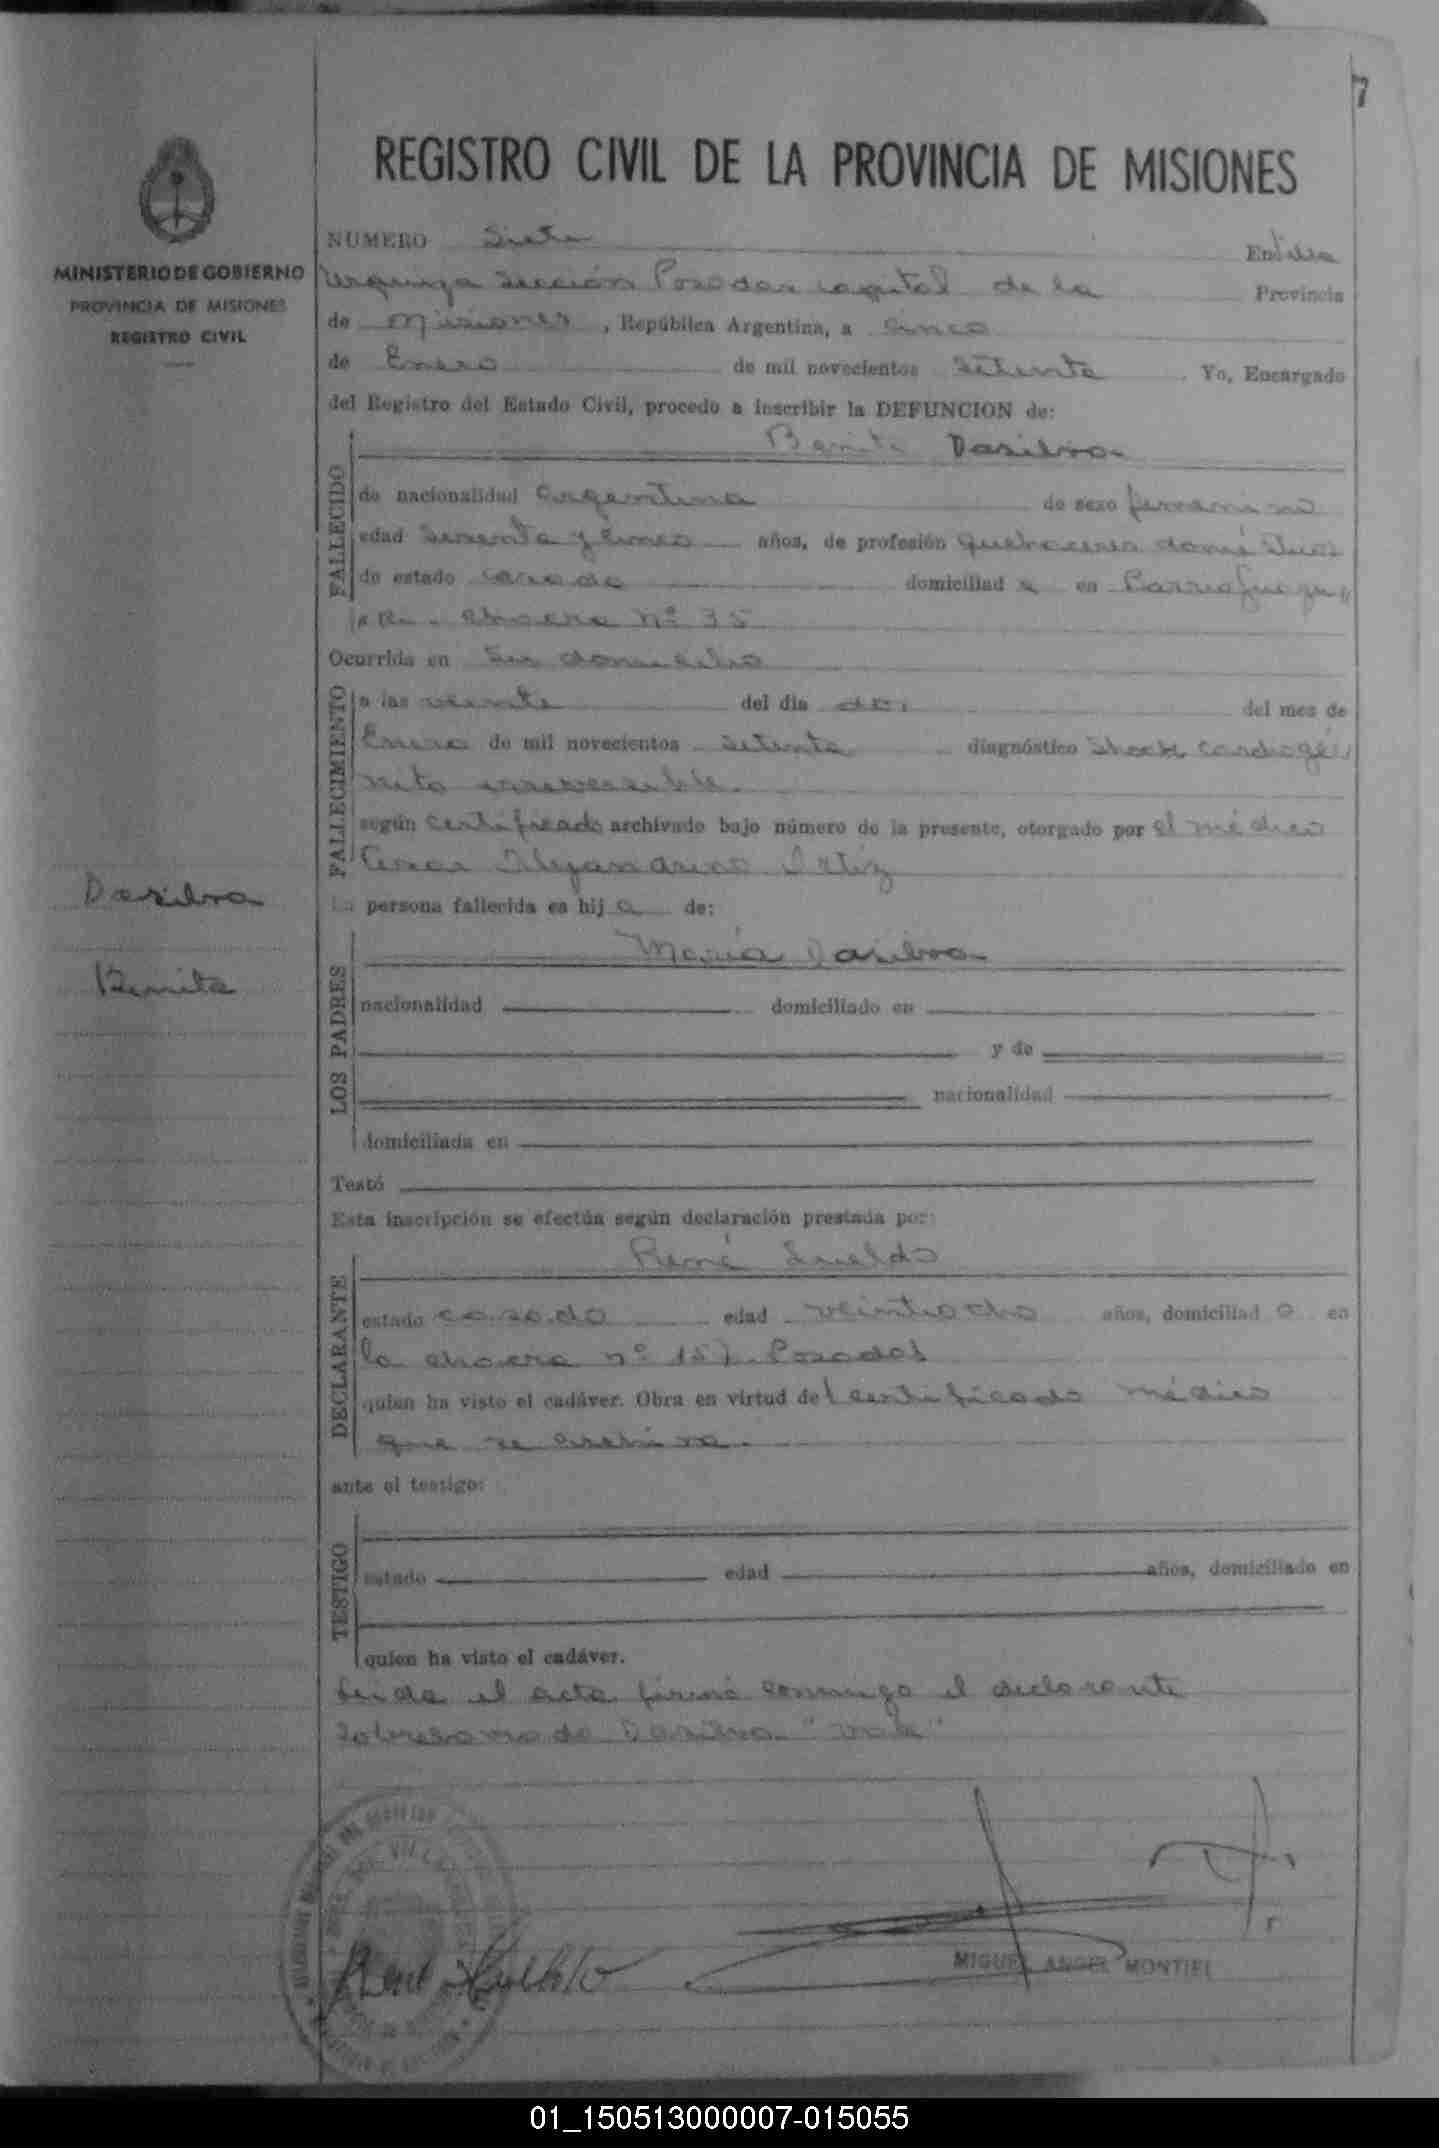 7
REGISTRO CIVIL DE LA PROVINCIA DE MISIONES
MINISTERIO DE GOBIERNO
PROVINCIA DE MISIONES
REGISTRO CIVIL
NUMERO Siete En Villa
Urquiza Sección Posadas capital de la Provincia
de Misiones, República Argentina, a cinco
de Enero de mil novecientos setenta. Yo, Encargado
del Registro del Estado Civil, procedo a inscribir la DEFUNCION de:
Benita Dasilva
FALLECIDO
de nacionalidad argentina de sexo femenino
edad sesenta y cinco años, de profesión quehaceres domésticos
de estado casada domiciliad a en
chacra nº 35
Ocurrida en su domicilio
FALLECIMIENTO
a las veinte del dia dos del mes de
Enero de mil novecientos setenta diagnóstico Shock cardiogé
irreversible.
según certificado archivado bajo número de la presente, otorgado por el médico
Cesar Alejandrino Ortiz
La persona fallecida es hij a de:
Dasilva
Benita
LOS PADRES
María Dasilva
nacionalidad domiciliado en
y de
nacionalidad
domiciliada en
Testó
Esta inscripción se efectúa según declaración prestada por:
DECLARANTE
René Sueldo
estado casado edad veintiocho años, domiciliad o en
la chacra nº Posadas
quien ha visto el cadáver. Obra en virtud del certificado médico
que se archiva.
ante el testigo:
TESTIGO
estado edad años, domiciliado en
quien ha visto el cadáver.
Leida el acta firmó conmigo el declarante
Sobreborrado Dasilva "vale"
MIGUEL ANGEL MONTIEL
01_150513000007-015055